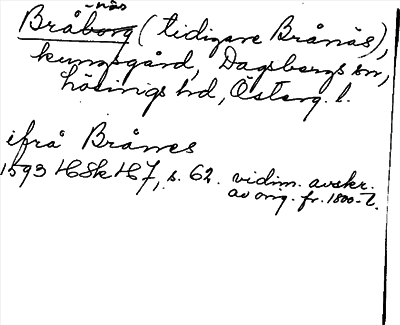 -näs
Bråborg (tidigare Brånäs),
kungsgård, Dagsbergs sn,
Lösings hd, Österg. l.
ifrå Brånes
1593 HSkH 7, s. 62. vidim. avskr.
av orig. fr. 1800-t.